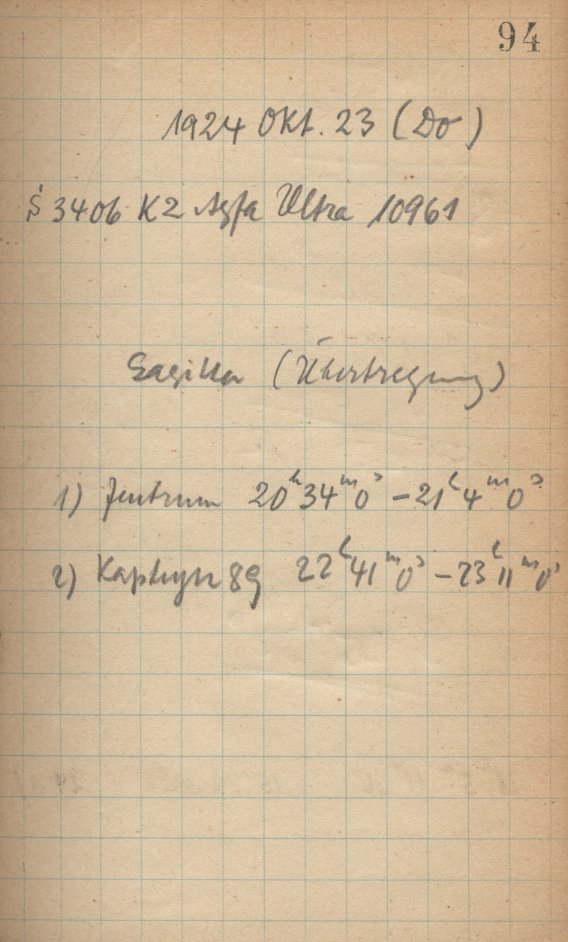 94
1924 Okt. 23 (Do)
S 3406 K2 Agfa Ultra 10961
Sagitta (Übertragung)
1) Zentrum 20h 34m 0s – 21h 4m 0s
2) Kapteyn 89 22h 41m 0s – 23h 11m 0s